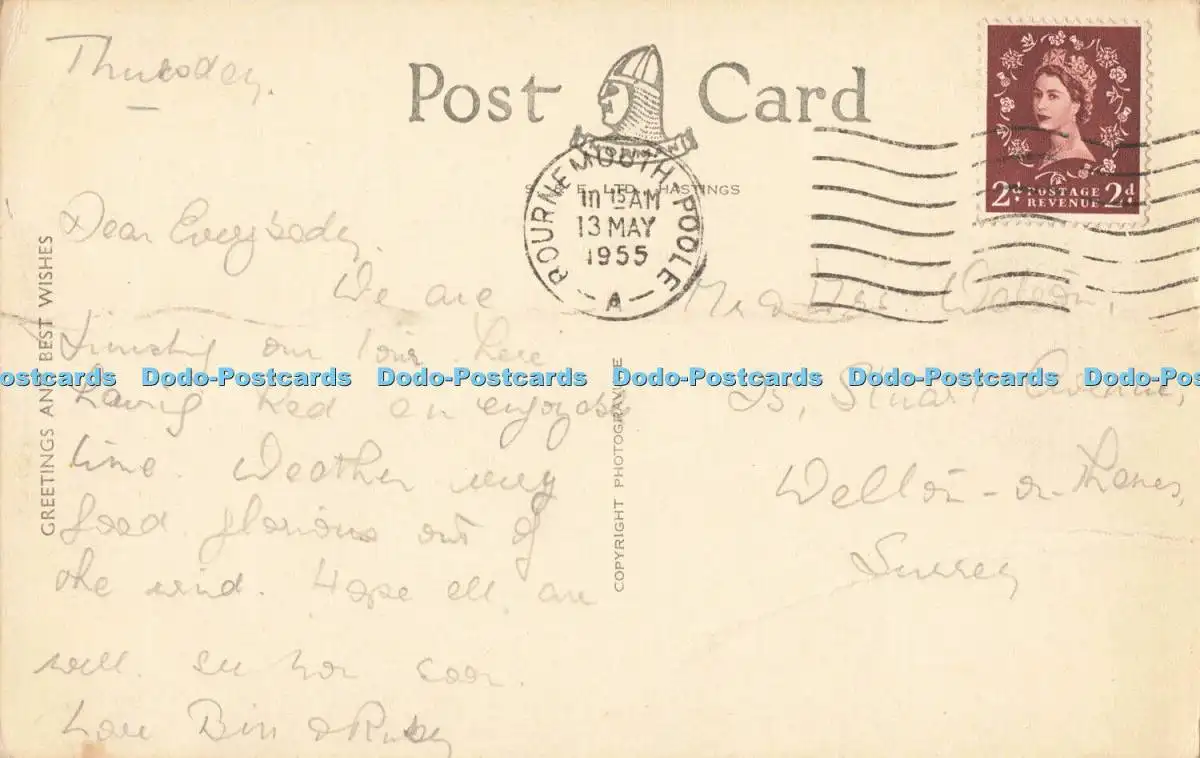 Thursday.
Post Card
NORMAN
S & E LTD. HASTINGS
BOURNEMOUTH-POOLE
10 15 AM
13 MAY
1955
A
2d POSTAGE REVENUE 2d
GREETINGS AND BEST WISHES
COPYRIGHT PHOTOGRAVURE
Dear Everybody.
We are
finishing our tour here
having had an enjoyable
time. Weather very
good glorious out of
the wind. Hope all are
well. See you soon.
Love Bin & Ruby
Mr & Mrs. Watson,
Stuart Avenue,
Walton-on-Thames,
Surrey
Dodo-Postcards Dodo-Postcards Dodo-Postcards Dodo-Postcards Dodo-Postcards Dodo-Postcards